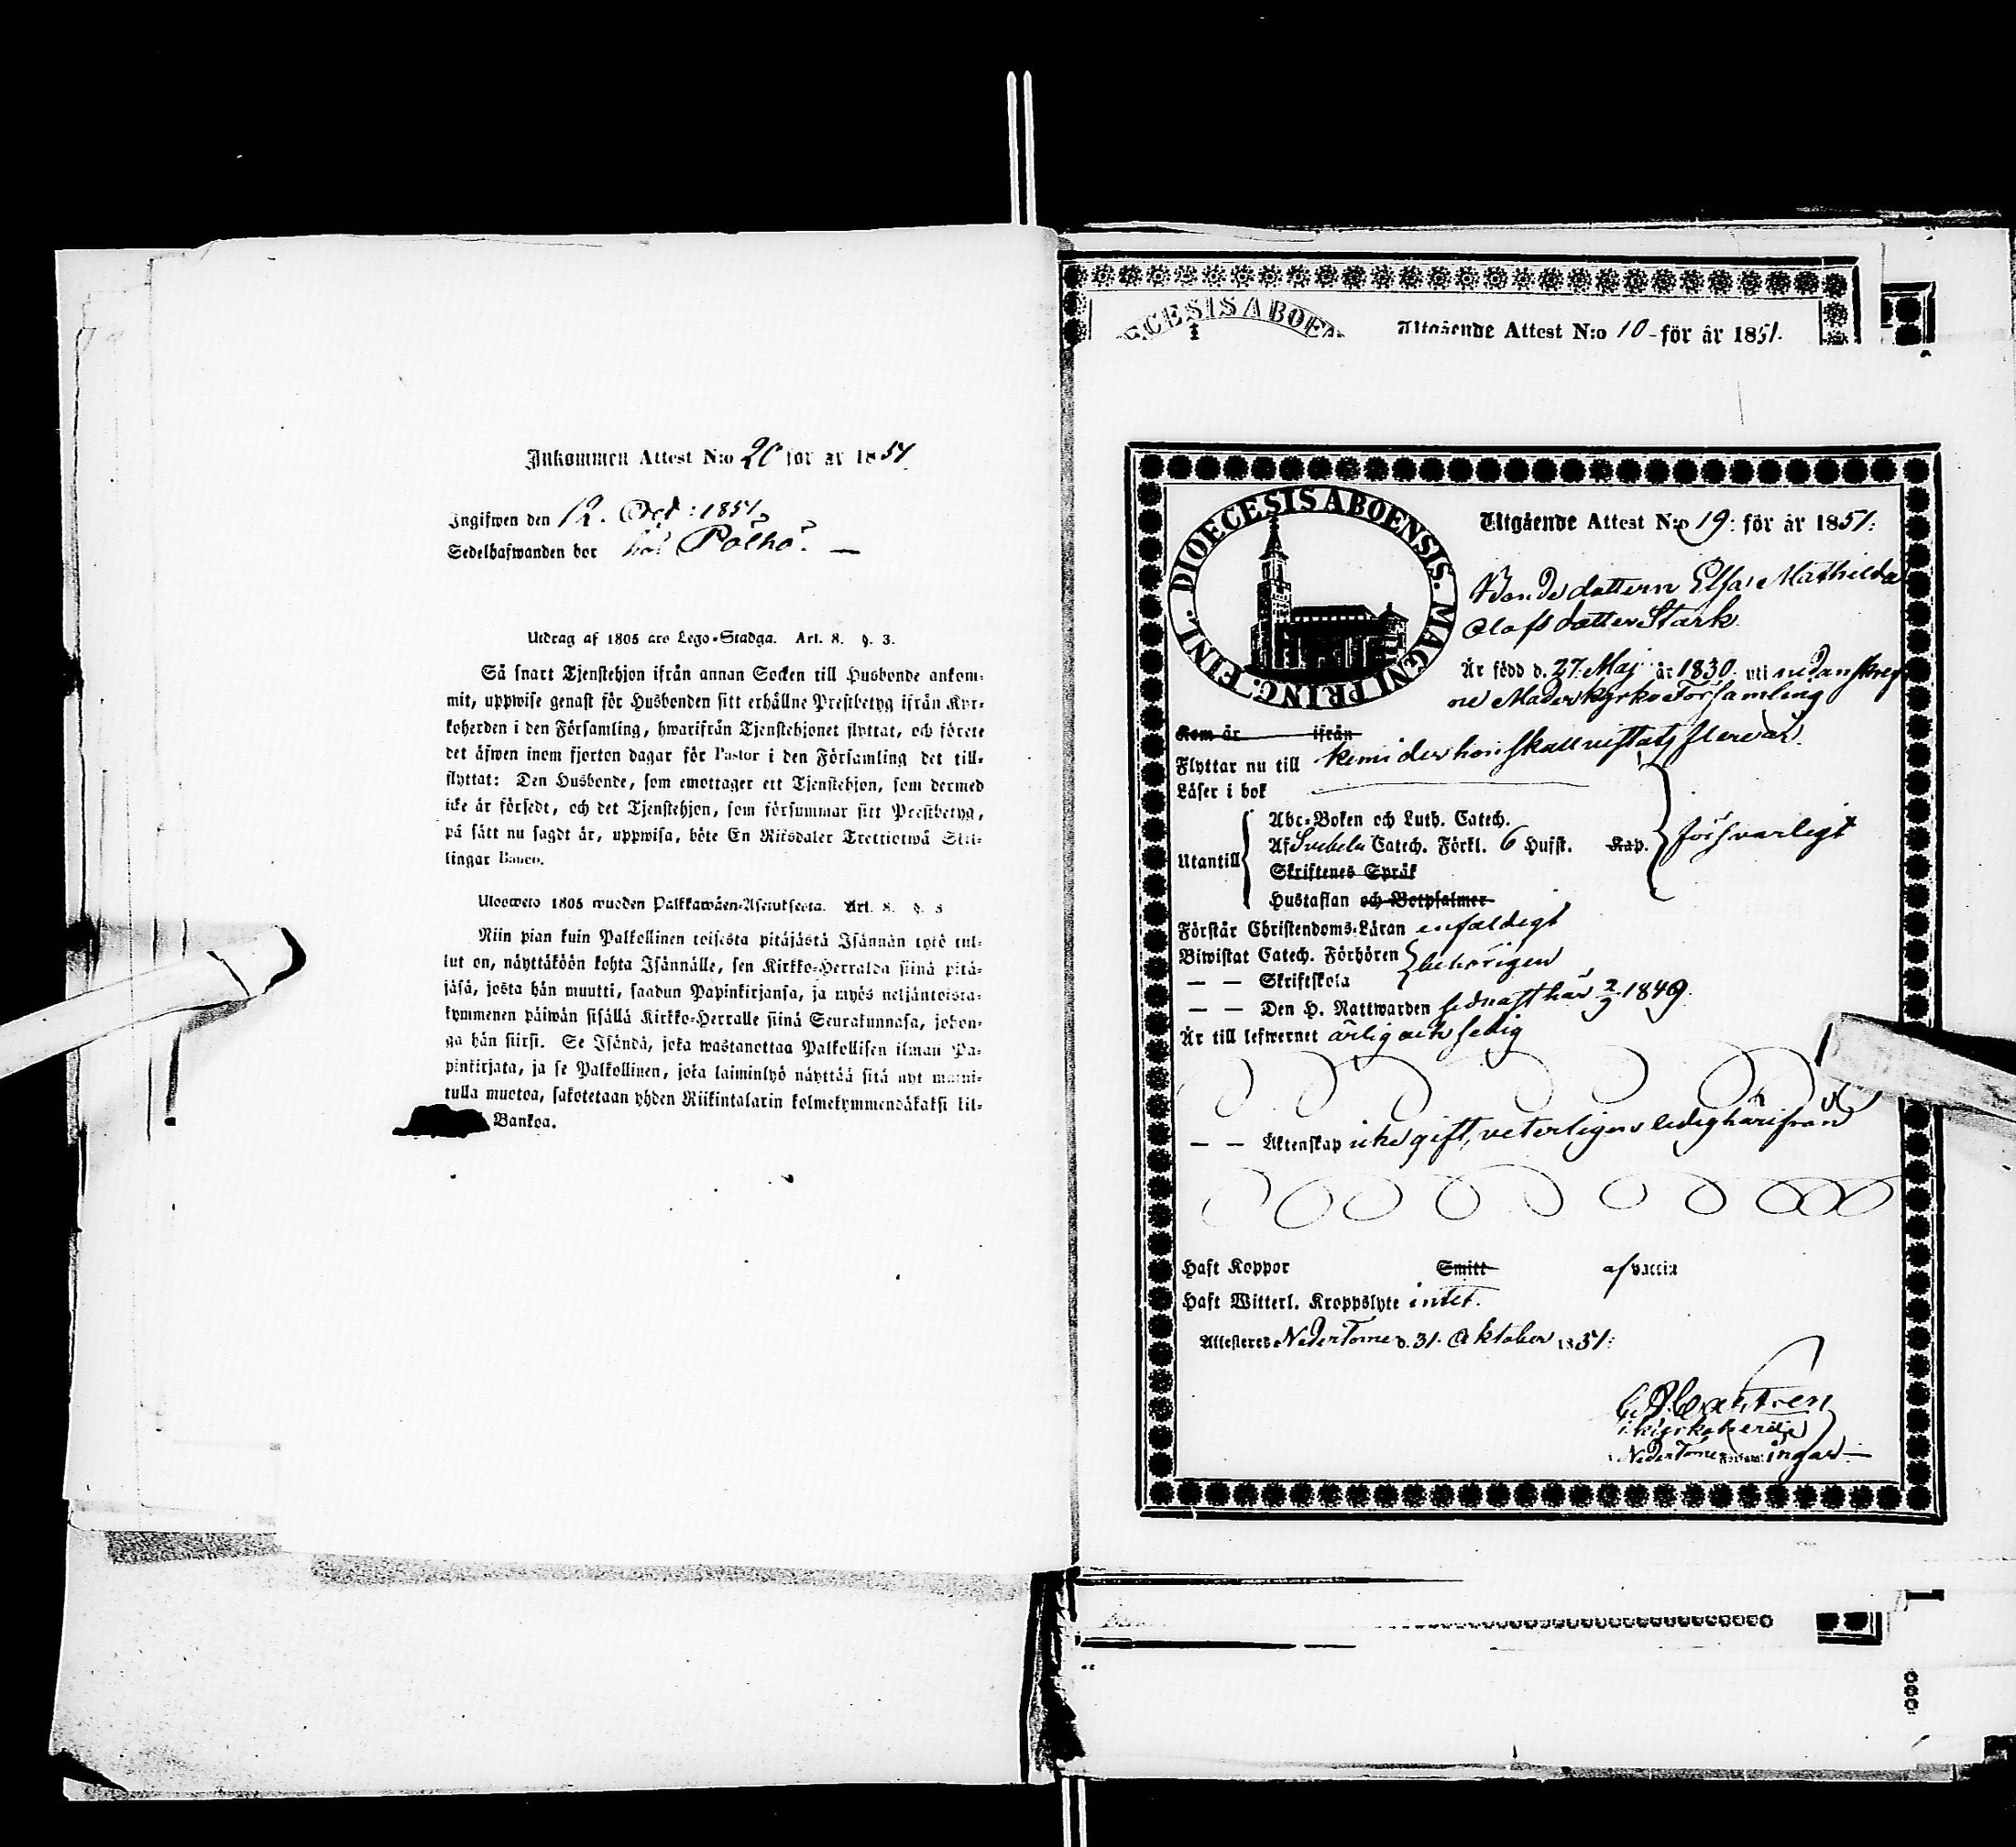 Inkommen Attest N:o 20 för år 1851.
Ingifwen den 12. 1851.
Sedelhafwanden bor
Utdrag af 1805 års Lego-Stadga. Art. 8. §. 3.
Så snart Tjenstehjon ifrån annan Socken till Husbonde ankom-
mit, uppwise genast för Husbonden sitt erhållne Prestbetyg ifrån Kyr-
koherden i den Församling, hwarifrån Tjenstehjonet flyttat, och förete
det äfwen inom fjorton dagar för Pastor i den Församling det till-
flyttat: Den Husbonde, som emottager ett Tjenstehjon, som dermed
icke är försedt, och det Tjenstehjon, som försummar sitt Prestbetyg,
på sätt nu sagdt är, uppwisa, böte En Riksdaler Trettiotwå Skil-
lingar Banco.
Ulosweto 1805 wuoden Palkkawäen-Asetuksesta. Art. 8. §. 3
Niin pian kuin Palkollinen toisesta pitäjästä Isännän työö tul-
lut on, näyttäköön kohta Isännälle, sen Kirkko-Herralda siinä pitä-
jäsä, josta hän muutti, saadun Papinkirjansa, ja myös neljäntoista-
kymmenen päiwän sisällä Kirkko-Herralle siinä Seurakunnasa, johon-
ga hän siirsi. Se Isändä, joka wastanottaa Palkollisen ilman Pa-
pinkirjata, ja se Palkollinen, joka laiminlyö näyttää sitä nyt maini-
tulla muotoa, sakotetaan yhden Riikintalarin kolmekymmendäkaksi kil-
Bankoa.
DIOECESIS ABOEN
Utgående Attest N:o 10 för år 1851.
DIOECESIS ABOENSIS. MAGNI PRINC. FINL.
Utgående Attest N:o 19: för år 1851:
Bondedottern Elsa Mathilda
Olofsdotter Stark
Är född d. 27. Maj år 1830. uti nedanskref
ne Moderkyrko Församling
Kom år ifrån
Flyttar nu till Kemi der hon skall vistats flere år.
Läser i bok
Abc-Boken och Luth. Catech.
Utantill Af Svebelii Catech. Förkl. 6 Hufst. Kap. försvarligt
Skriftenes Språk
Hustaflan och Botpsalmer
Förstår Christendoms-Läran enfaldigt
Biwistat Catech. Förhören behörigen
— — Skriftskola
— — Den H. Nattwarden sednast här 2/9 1849.
Är till lefwernet ärlig och sedig
— — Äktenskap icke gift, veterligen ledig härifrån
Haft Koppor Smitt af vaccin
Haft Witterl. Kroppslyte intet.
Attesteres Neder Torneå d. 31. Oktober 1851:
Castrén
Kyrkoherde
Neder Torneå